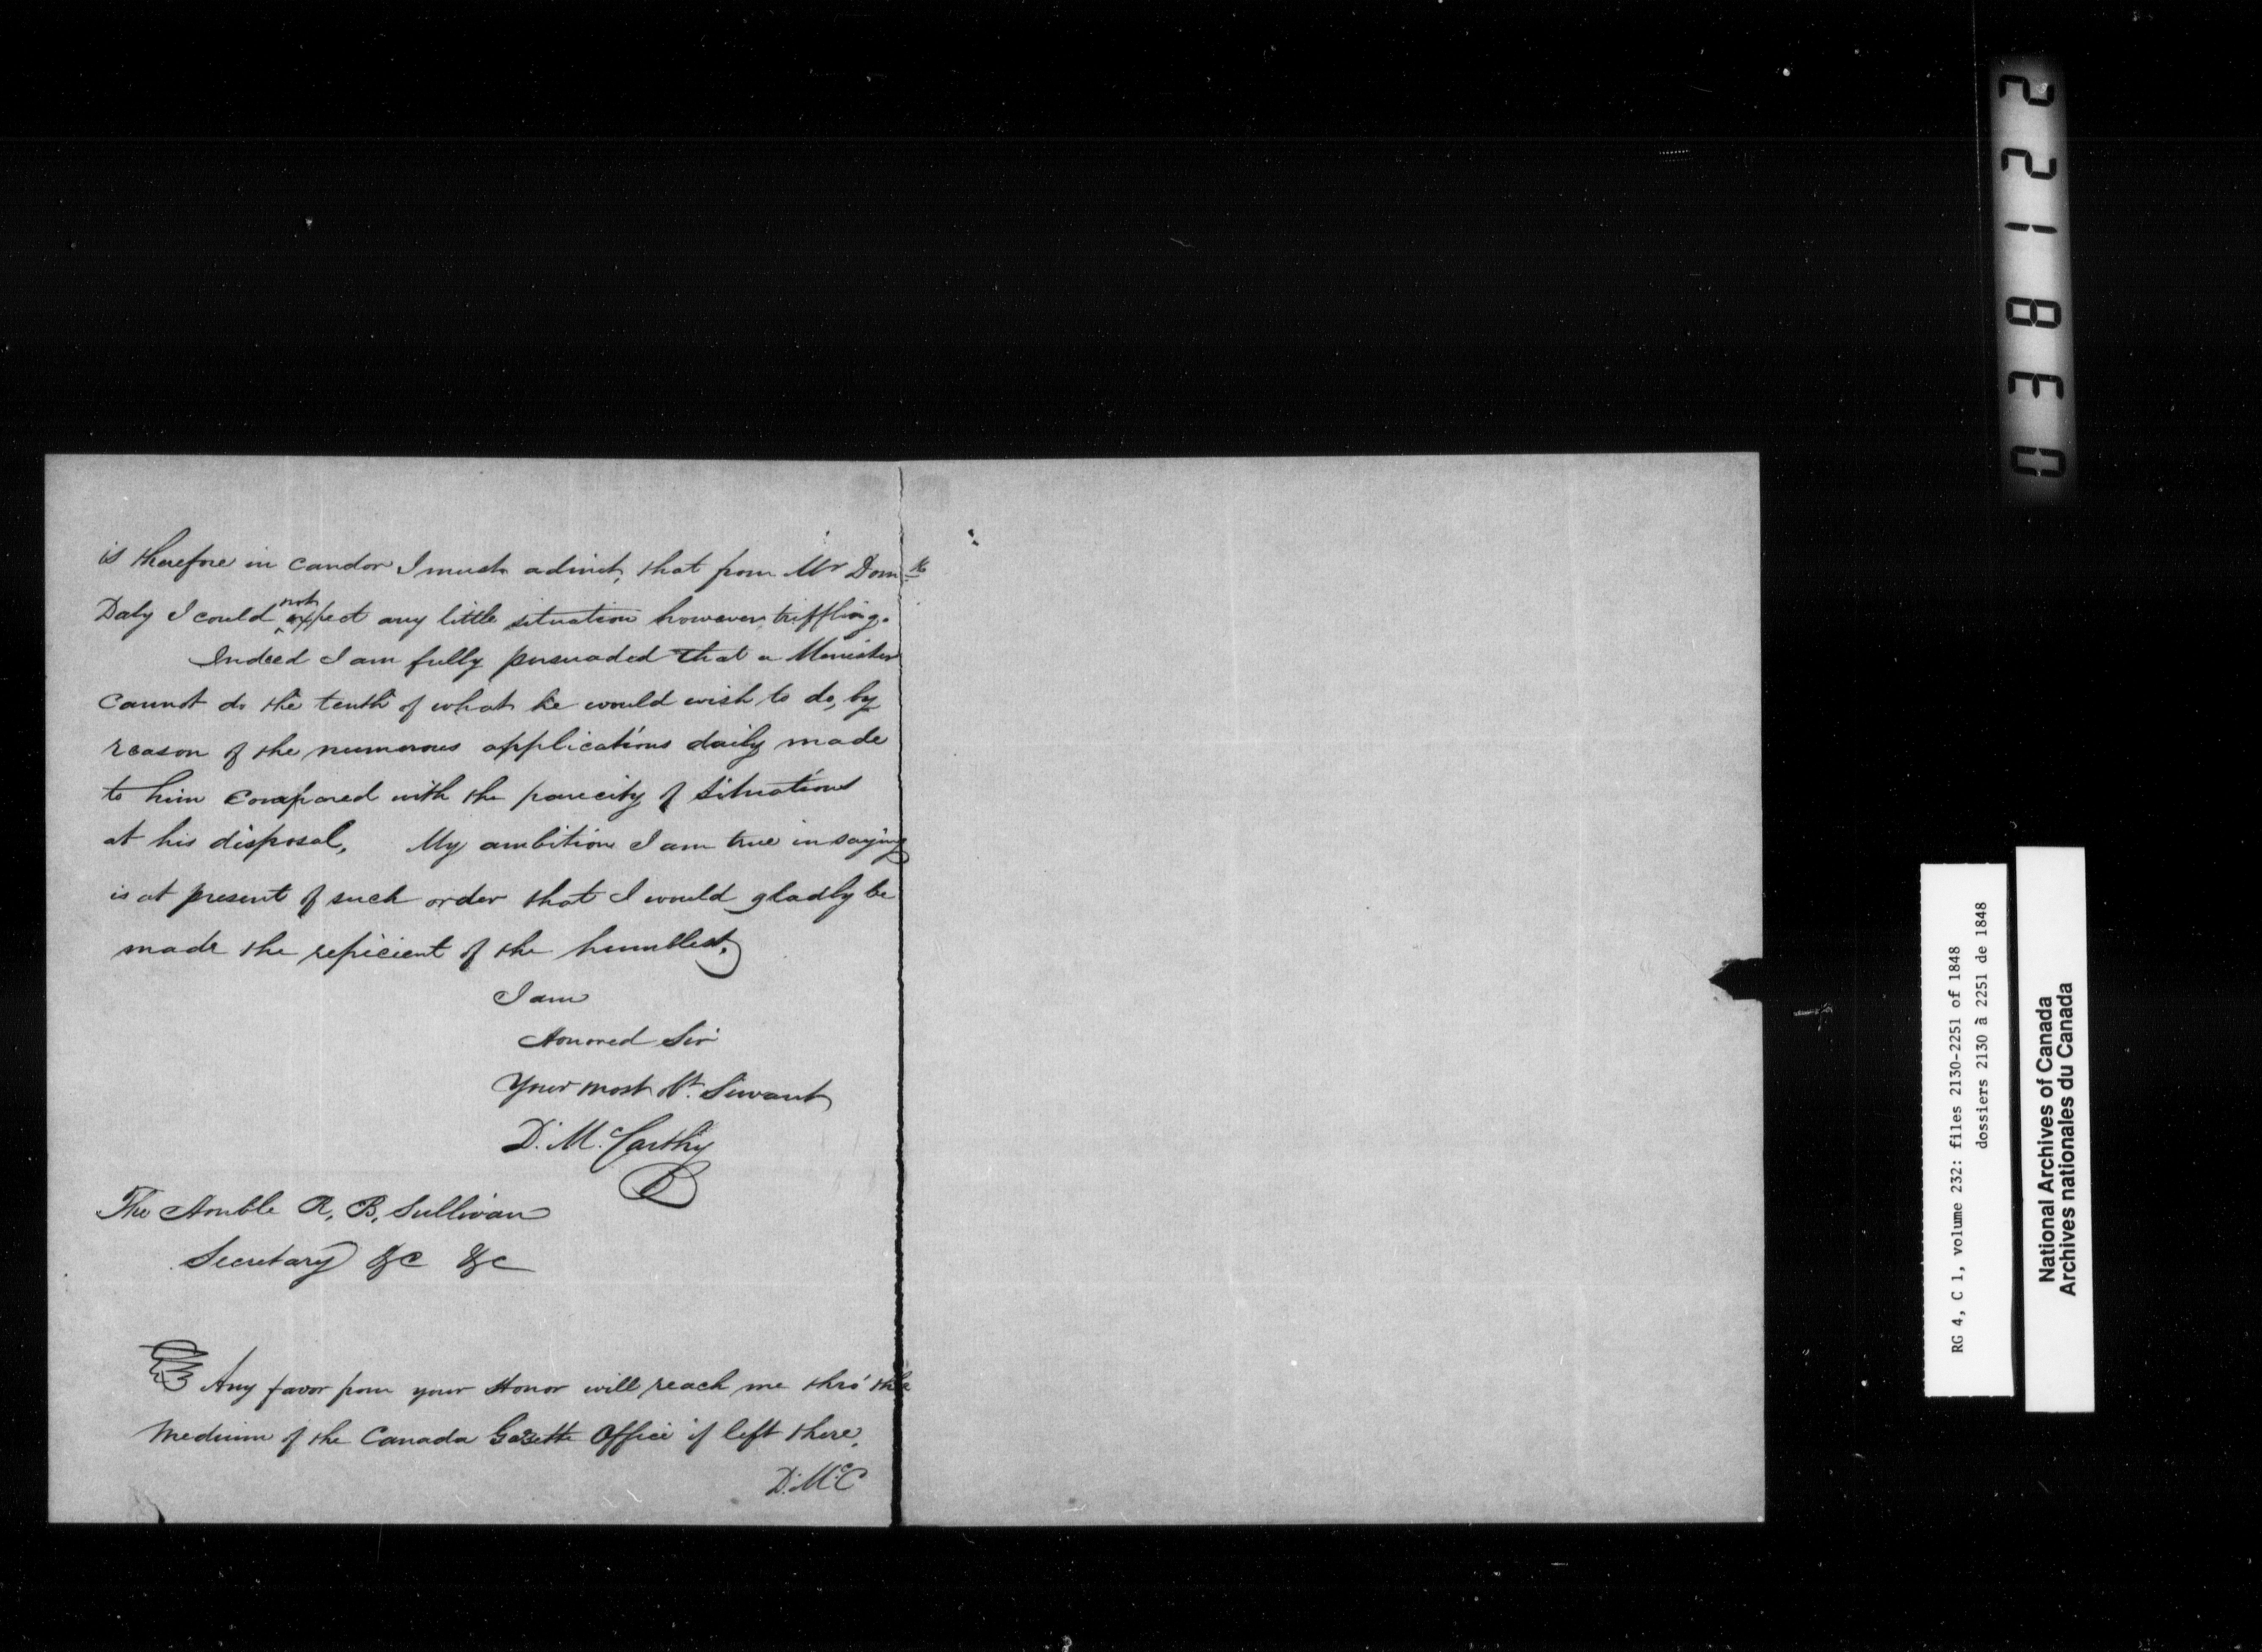 is therefore in candor I must admit, that from Mr Domk
Daly I could not expect any little situation however triffling.
Indeed I am fully persuaded that a Minister
cannot do the tenth of what he would wish to do, by
reason of the numerous applications daily made
to him compared with the paucity of situations
at his disposal. My ambition I am true in saying
is at present of such order that I would gladly be
made the repicient of the humblest.
I am
Honored Sir
Your most Ot. Servant
D. McCarthy
The Honble R. B. Sullivan
Secretary &c &c
Any favor from your Honor will reach me thro' the
Medium of the Canada Gazette Office if left there.
D. McC
0 3 8 1 2 2
RG 4, C 1, volume 232: files 2130-2251 of 1848
dossiers 2130 à 2251 de 1848
National Archives of Canada
Archives nationales du Canada